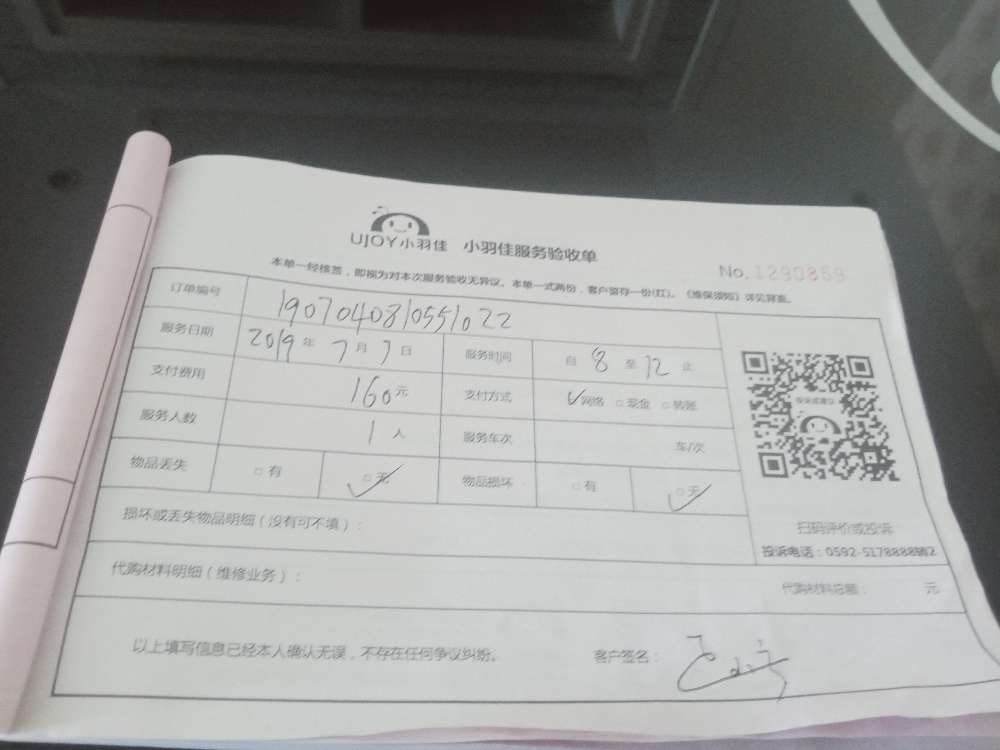 UJOY小羽佳 小羽佳服务验收单
No.1290859
本单一经核签，即视为对本次服务验收无异议。本单一式两份，客户留存一份(红)。《维保须知》详见背面。
订单编号 1907040810551022
服务日期 2019年7月7日 服务时间 自8至12止
支付费用 160元 支付方式 网络 现金 转账
服务人数 1人 服务车次 车/次
物品丢失 有 无 物品损坏 有 无
扫码评价或投诉
投诉电话：0592-5178888转2
损坏或丢失物品明细（没有可不填）：
代购材料明细（维修业务）： 代购材料总额： 元
以上填写信息已经本人确认无误，不存在任何争议纠纷。 客户签名：